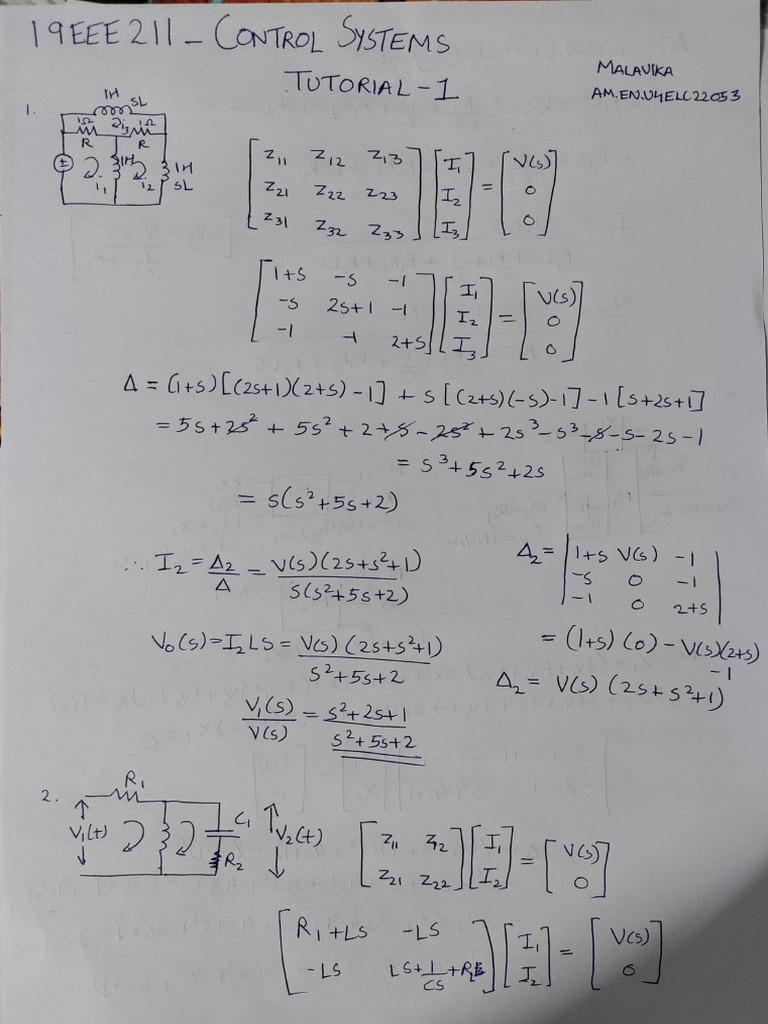 19EEE211 - CONTROL SYSTEMS
TUTORIAL - 1
MALAVIKA
AM.EN.U4ELC22053
1.
1H SL
1Ω i3 1Ω
R R
± 1H 1H
i1 i2 SL
[Z11 Z12 Z13] [I1] = [V(s)]
[Z21 Z22 Z23] [I2] [0]
[Z31 Z32 Z33] [I3] [0]
[1+s -s -1] [I1] = [V(s)]
[-s 2s+1 -1] [I2] [0]
[-1 -1 2+s] [I3] [0]
Δ = (1+s)[(2s+1)(2+s) -1] + s[(2+s)(-s) -1] -1[s+2s+1]
= 5s+2s² + 5s² + 2 + s - 2s² + 2s³ - s³ - s - s - 2s - 1
= s³ + 5s² + 2s
= s(s² + 5s + 2)
∴ I2 = Δ2/Δ = V(s)(2s+s²+1) / s(s²+5s+2)
Δ2 = |1+s V(s) -1|
|-s 0 -1|
|-1 0 2+s|
= (1+s)(0) - V(s)(2+s) -1
V0(s) = I2LS = V(s)(2s+s²+1) / s²+5s+2
Δ2 = V(s)(2s+s²+1)
V1(s)/V(s) = s²+2s+1 / s²+5s+2
2.
R1
V1(t) C1 V2(t)
R2
[Z11 Z12] [I1] = [V(s)]
[Z21 Z22] [I2] [0]
[R1+LS -LS] [I1] = [V(s)]
[-LS LS+1/CS+R2] [I2] [0]